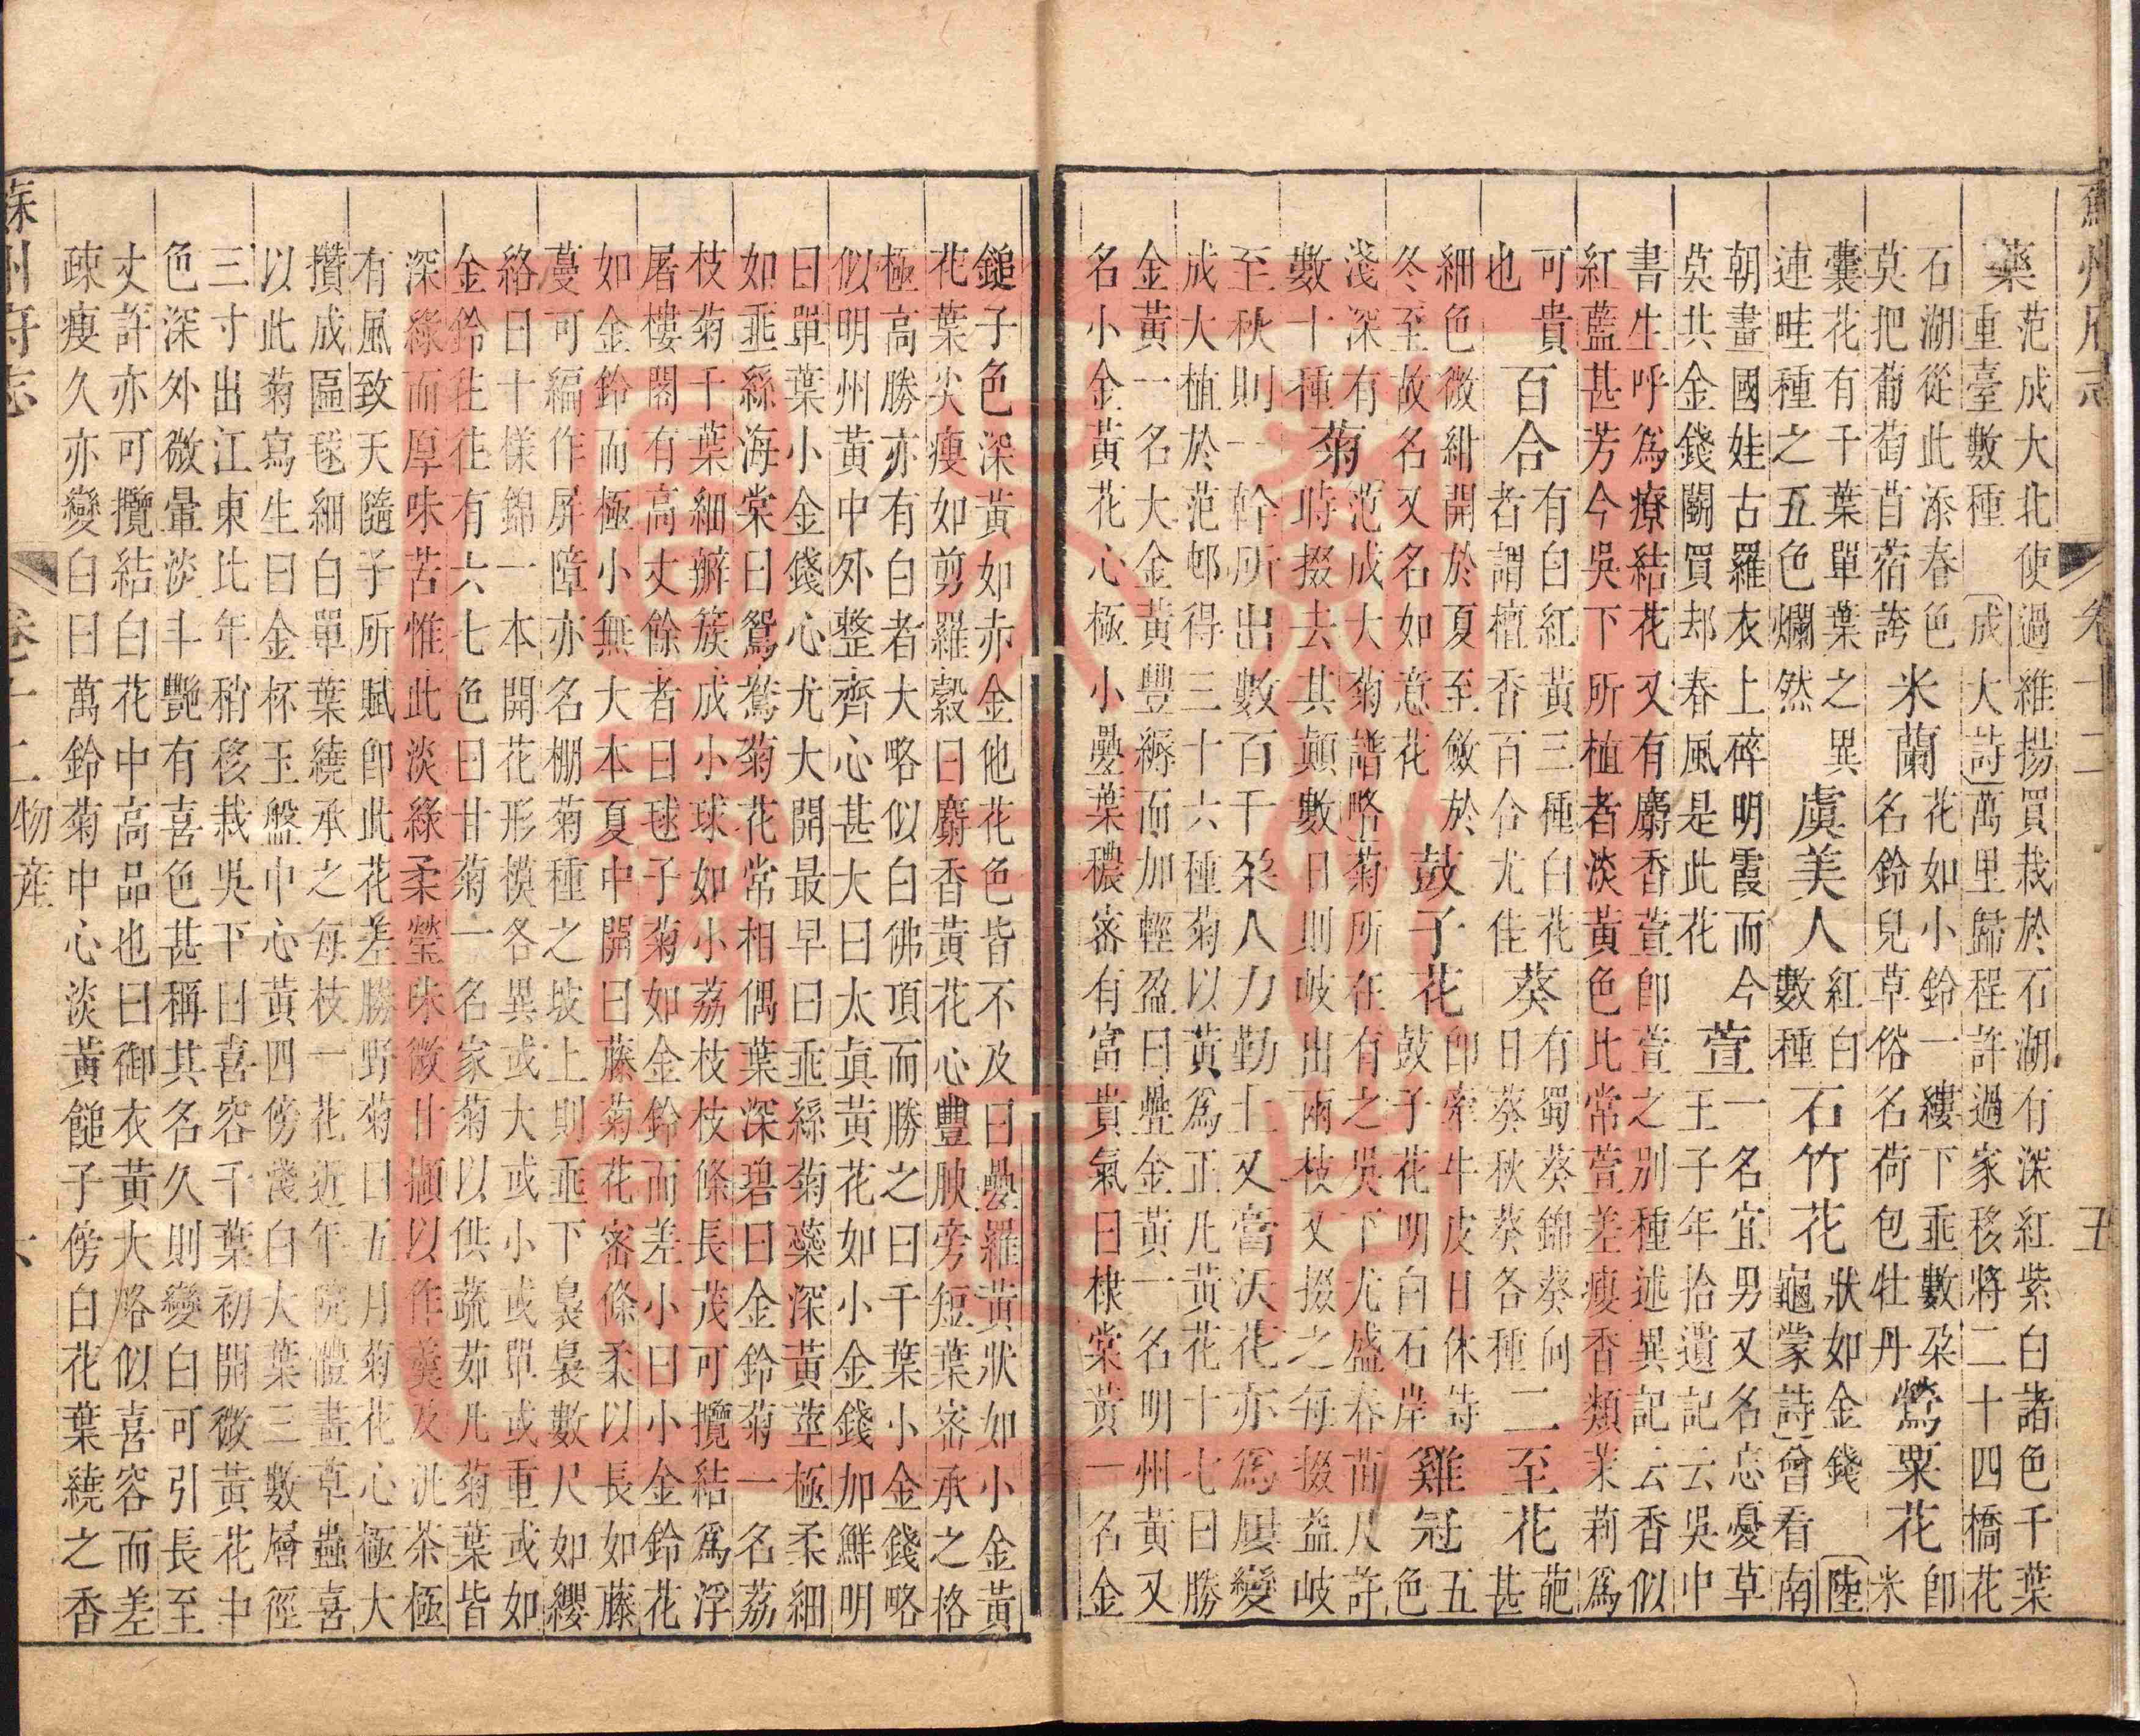 蘇州府志　卷十二　五
藥　范成大北使過維揚買栽於石湖有深紅紫白諸色千葉
重臺數種　成大詩萬里歸程許過家移將二十四橋花
石湖從此添春色
莫把葡萄苜蓿誇
米蘭
花如小鈴一縷下垂數朶
名鈴兒草俗名荷包牡丹
鶯粟花
卽米
囊花有千葉單葉之異
連畦種之五色爛然
虞美人
紅白
數種
石竹花
狀如金錢　陸
龜蒙詩曾看南
朝畫國娃古羅衣上碎明霞而今
莫共金錢鬭買却春風是此花
萱
一名宜男又名忘憂草
王子年拾遺記云吳中
書生呼爲療結花又有麝香萱卽萱之別種述異記云香似
紅藍甚芳今吳下所植者淡黃色比常萱差瘦香類茉莉爲
可貴
也
百合
有白紅黃三種白花
者謂檀香百合尤佳
葵
有蜀葵錦葵向
日葵秋葵各種
二至花
葩
甚
細色微紺開於夏至斂於
冬至故名又名如意花
鼓子花
卽牽牛皮日休詩
鼓子花明白石岸
雞冠
五
色
淺深有
數十種
菊
范成大菊譜略菊所在有之吳下尤盛春苗尺許
時掇去其顛數日則岐出兩枝又掇之每掇益岐
至秋則一幹所出數百千朶人力勤土又膏沃花亦爲屢變
成大植於范邨得三十六種菊以黃爲正凡黃花十七曰勝
金黃一名大金黃豐縟而加輕盈曰疊金黃一名明州黃又
名小金黃花心極小疊葉穠密有富貴氣曰棣棠黃一名金
鎚子色深黃如赤金他花色皆不及曰疊羅黃狀如小金黃
花葉尖瘦如剪羅縠曰麝香黃花心豐腴旁短葉密承之格
極高勝亦有白者大略似白佛頂而勝之曰千葉小金錢略
似明州黃中外整齊心甚大曰太眞黃花如小金錢加鮮明
曰單葉小金錢心尤大開最早曰垂絲菊蘂深黃莖極柔細
如垂絲海棠曰鴛鴦菊花常相偶葉深碧曰金鈴菊一名荔
枝菊千葉細瓣簇成小球如小荔枝枝條長茂可攬結爲浮
屠樓閣有高丈餘者曰毬子菊如金鈴而差小曰小金鈴花
如金鈴而極小無大本夏中開曰藤菊花密條柔以長如藤
蔓可編作屏障亦名棚菊種之坡上則垂下裊裊數尺如纓
絡曰十樣錦一本開花形模各異或大或小或單或重或如
金鈴往往有六七色曰甘菊一名家菊以供蔬茹凡菊葉皆
深綠而厚味苦惟此淡綠柔瑩味微甘擷以作羹及泛茶極
有風致天隨子所賦卽此花差勝野菊曰五月菊花心極大
攢成匾毬細白單葉繞承之每枝一花近年院體畫草蟲喜
以此菊寫生曰金杯玉盤中心黃四傍淺白大葉三數層徑
三寸出江東比年稍移栽吳下曰喜容千葉初開微黃花中
色深外微暈淡斗艷有喜色甚稱其名久則變白可引長至
丈許亦可攬結白花中高品也曰御衣黃大略似喜容而差
疎瘦久亦變白曰萬鈴菊中心淡黃鎚子傍白花葉繞之香
蘇州府志　卷十二物產　六